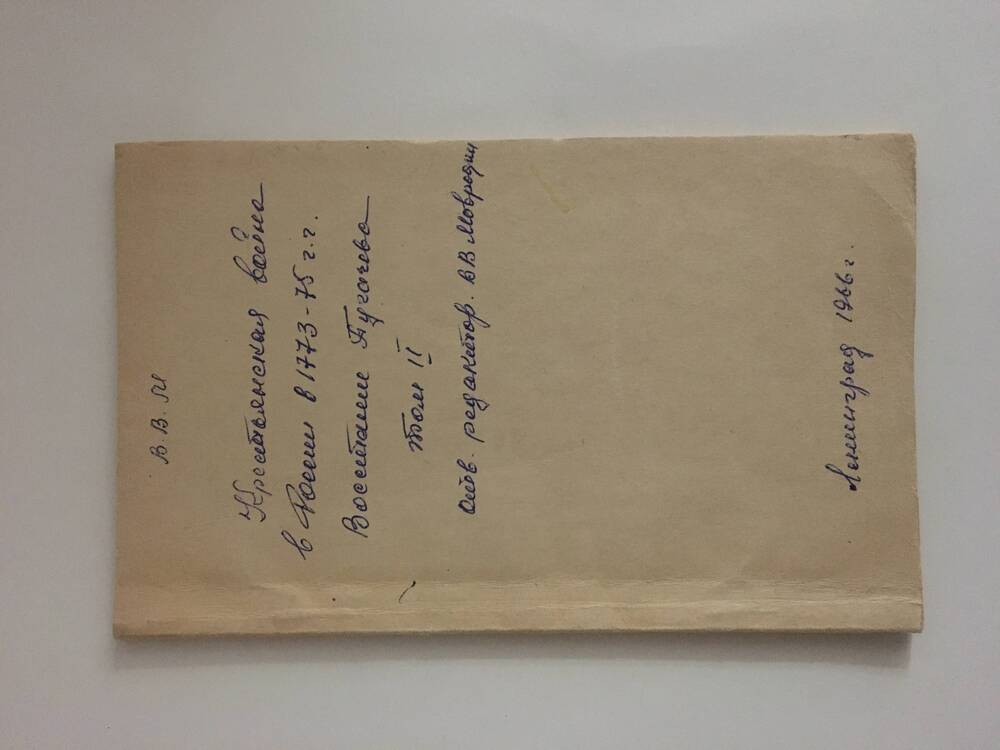 В. В. М
Крестьянская война
в России в 1773-75 г.г.
Восстание Пугачева
Том II
отв. редактор. ВВ Мавродин
Ленинград 1966 г.